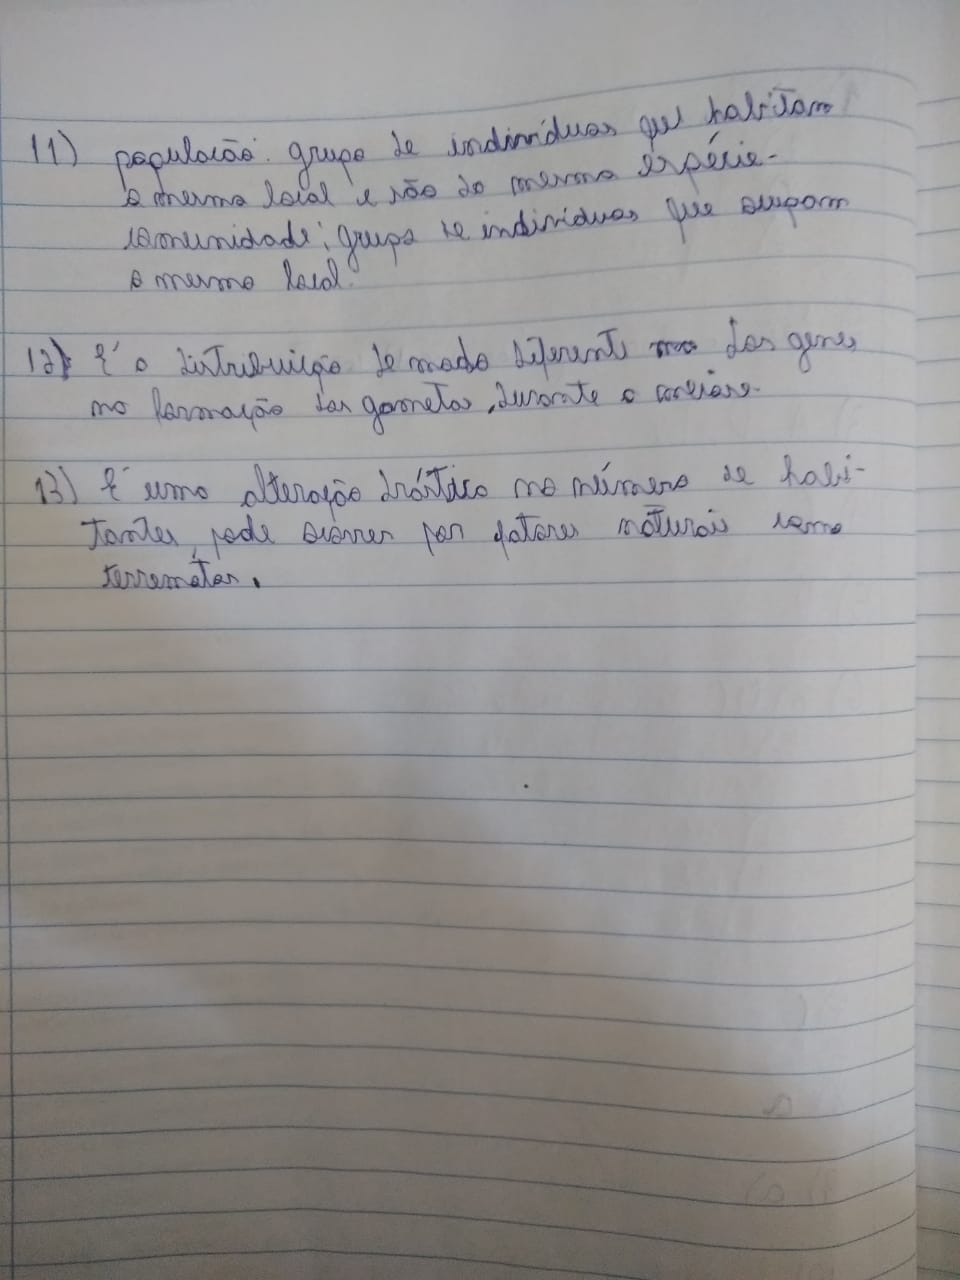 11) população: grupo de indivíduos que habitam
o mesmo local e são da mesma espécie.
comunidade: grupo de indivíduos que ocupam
o mesmo local.
12) É a distribuição de modo diferente dos genes
na formação dos gametas, durante a meiose.
13) É uma alteração drástica no número de habi-
tantes, pode ocorrer por fatores naturais como
terremotos.